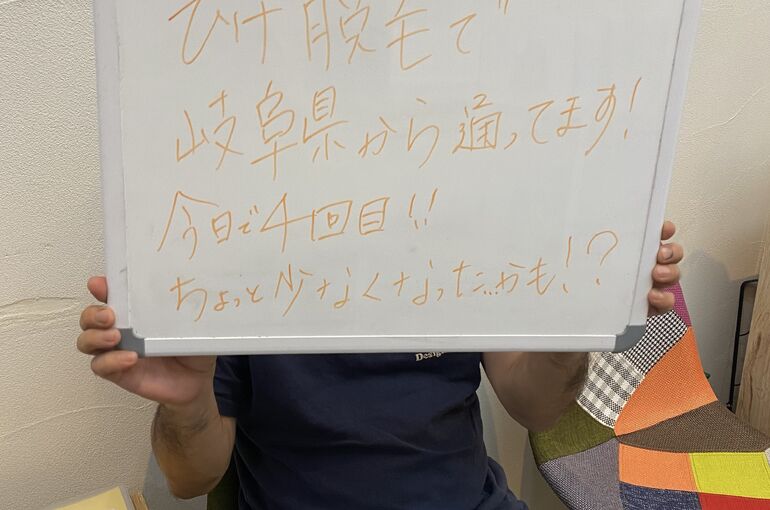 ひげ脱毛で
岐阜県から通ってます!
今日で4回目!!
ちょっと少なくなったかも!?
Design